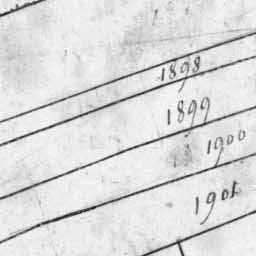 1898
1899
1900
1901